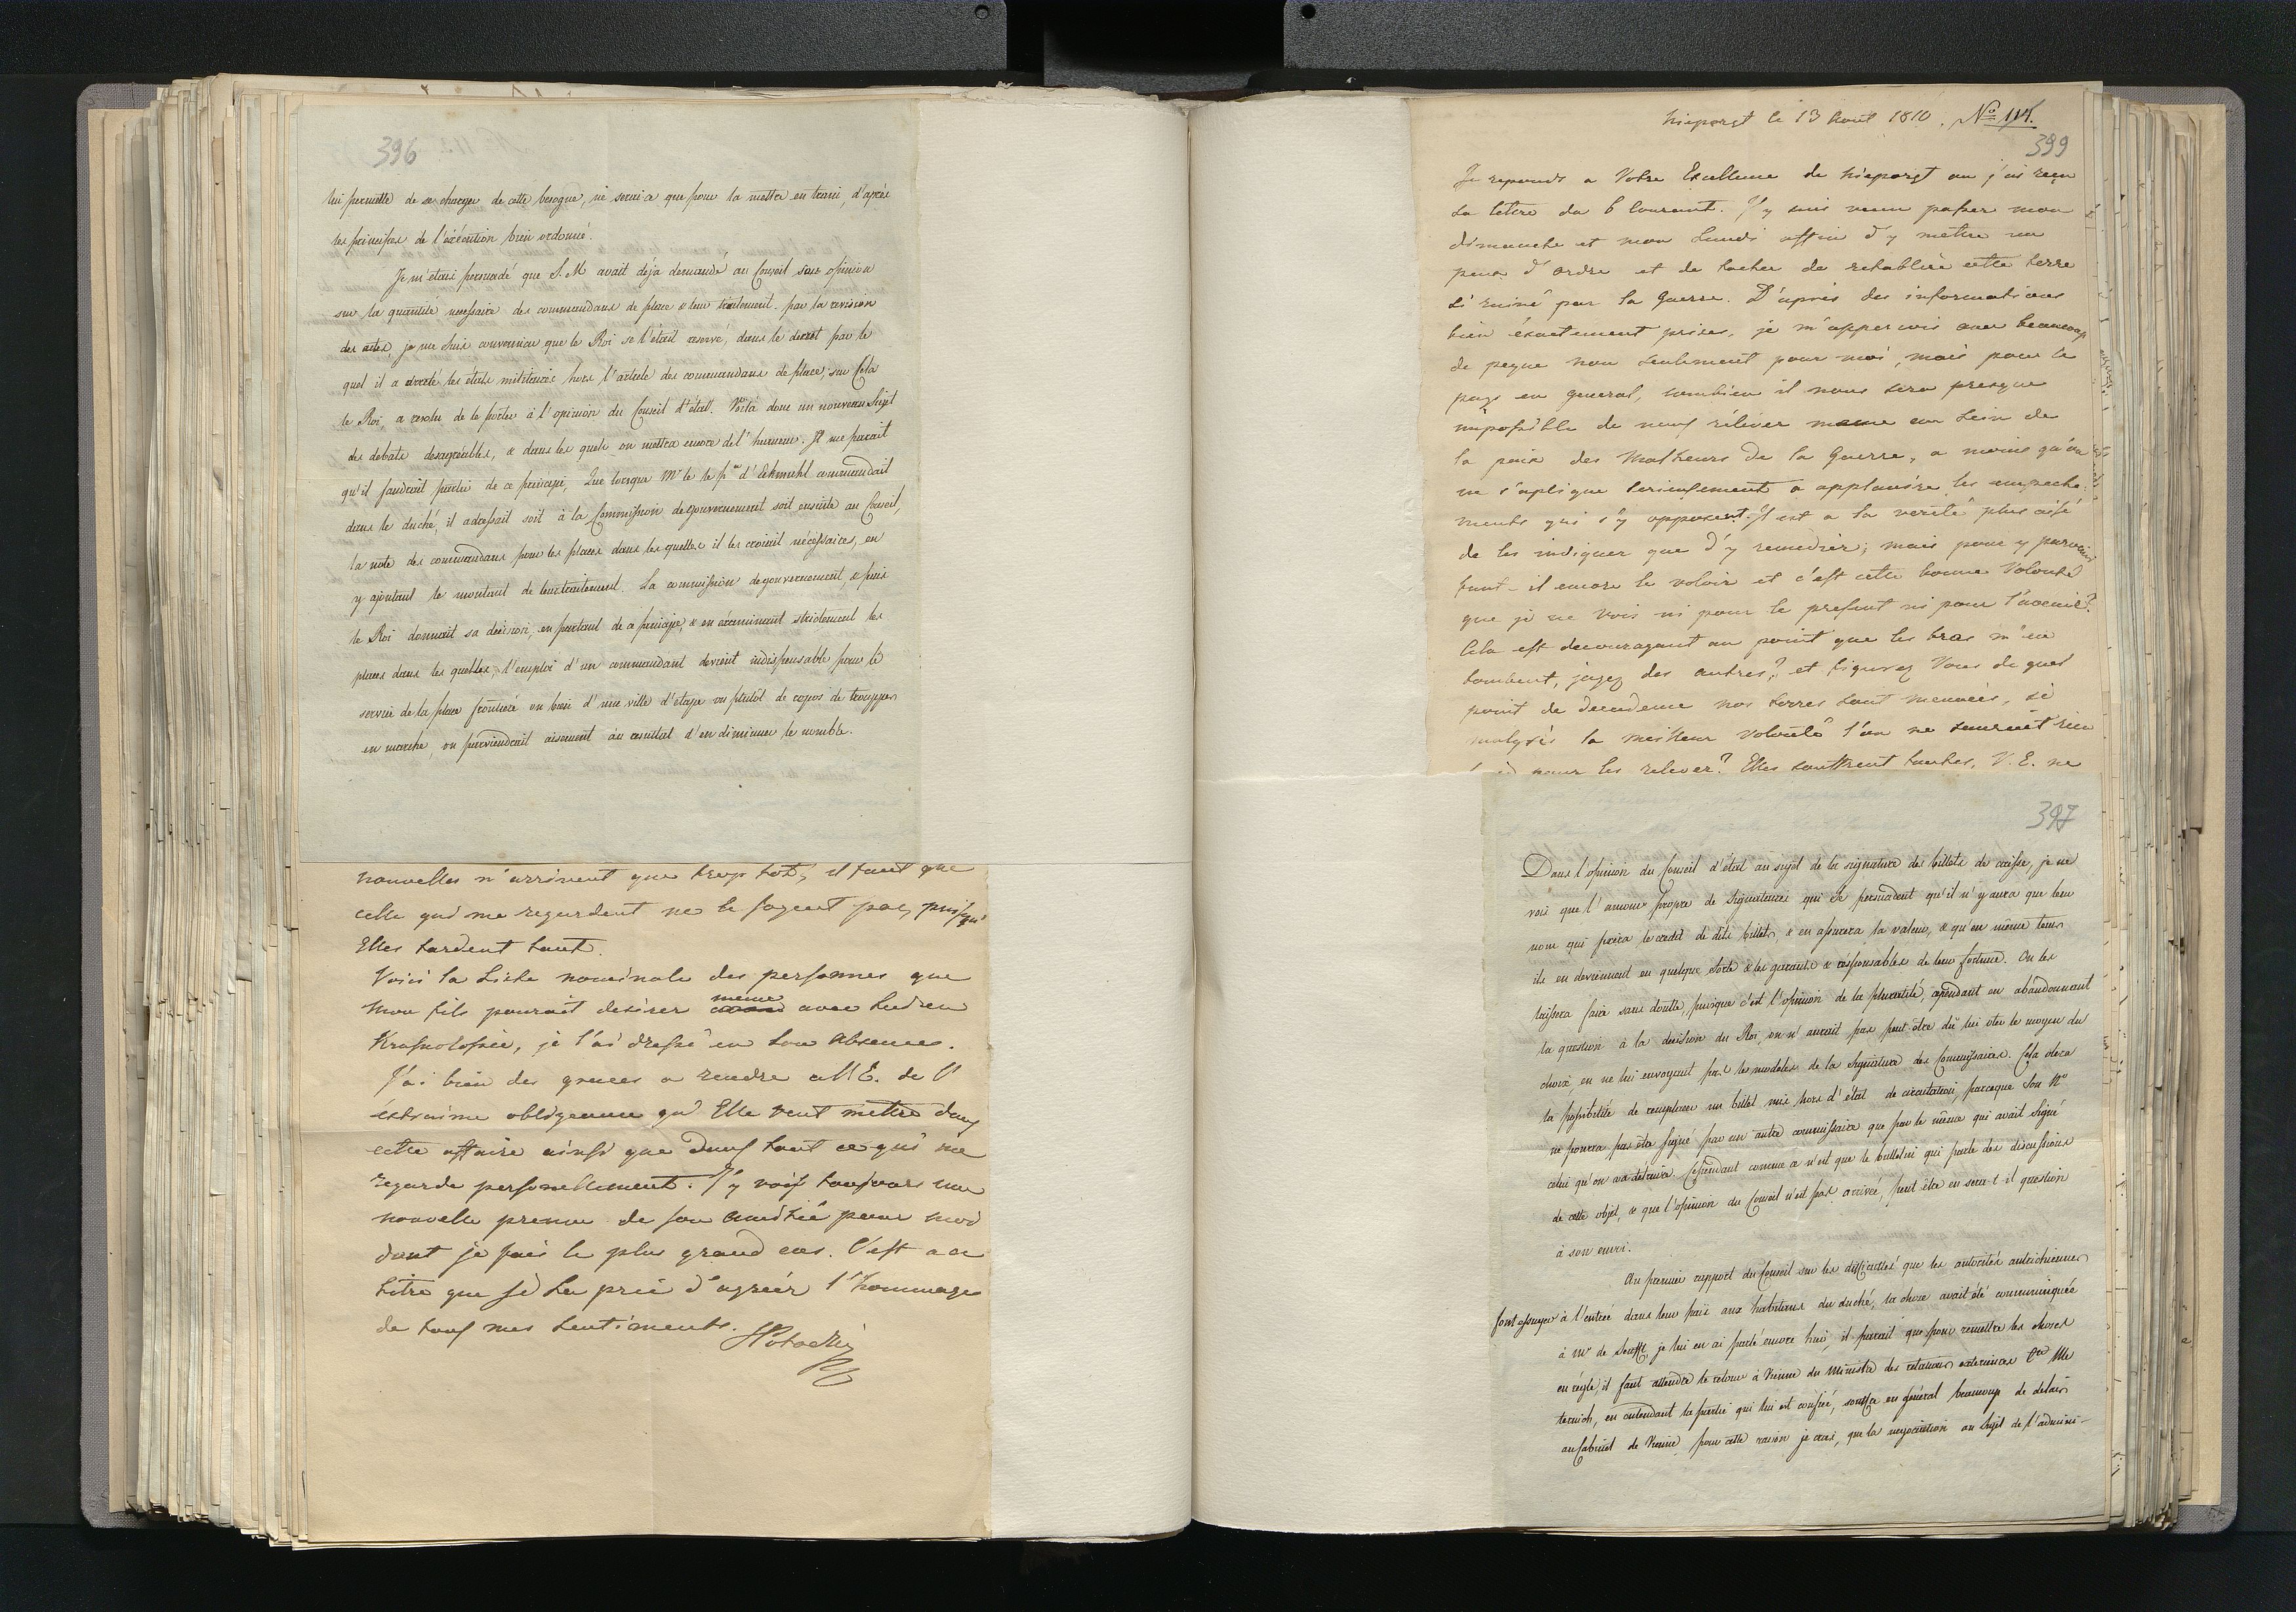 396
lui permette de se charger de cette besogne, ne servira que pour la mettre en train, d'après
les principes de l'exécution bien ordonné.
Je m'étais persuadé que S. M avait déja demandé au Conseil son opinion
sur la quantité necessaire des commandans de place & leur traitement. par la revision
des actes, je me suis convaincu que le Roi se l'était reservé, dans le decret par le
quel il a arreté les états militaires hors l'article des commandans de place; sur Cela
le Roi, a resolu de le porter à l'opinion du Conseil d'état. Voilà donc un nouveau Sujet
des debats desagréables, & dans les quels on mettra encore de l'humeur. Il me parait
qu'il faudrait partir de ce principe, Que lorsque Mr le le pce d'Eckmuhl commandait
dans le duché, il adressait soit à la Commission de gouvernement soit ensuite au Conseil,
la note des commandans pour les places dans les quelles il les croiait nécessaires, en
y ajoutant le montant de leur traitement. La commission de gouvernement, & puis
le Roi donnait sa decision, en partant de ce principe, & en examinant strictement les
places dans les quelles, l'emploi d'un commandant devient indispensable pour le
service de la place frontiere ou bien d'une ville d'étape ou plutôt de repos de trouppes
en marche, on parviendrait aisement au resultat d'en diminuer le nombre.
nouvelles n'arrivent que trop tot, il faut que
celle qui me regardent ne le soyent pas, puisqu'
Elles tardent tant.
Voici la Liste nominale des personnes que
Mon fils pourait desirer meme avec
je l'ai dressé en son Absence.
J'ai bien des graces a rendre a V. E. de l'
extreime obligeance qu'Elle veut mettre dans
cette affaire ainsi que dans tout ce qui me
regarde personellement. J'y vois toujours une
nouvelle preuve de son amitié pour moi
dont je fais le plus grand cas. C'est a ce
titre que je La prie d'agréér l'hommage
de tous mes Sentiments.
SPotocki
Nieporęt le 13 Aout 1810. No 114.
399
Je reponds a Votre Excellence de Nieporęt ou j'ai reçu
Sa lettre du 6 Courant. J'y suis venu passer mon
dimanche et mon Lundi affin d'y mettre un
peux d'ordre et de tacher de retablire cette terre
si ruiné par la Guerre. D'après des informations
bien éxactement prises, je m'appercois avec beaucoup
de peyne non seulement pour moi, mais pour le
pays en general, combien il nous sera presque
impossible de nous réléver meme au Sein de
la paix des Malheurs de la Guerre, a moins qu'on
ne s'aplique serieusement a applanire les empeche
ments qui s'y opposent. Il est a la verité plus aisé
de les indiquer que d'y remedièr; mais pour y parvenir
faut-il encore le voloir et c'est cette bonne Volonté
que je ne vois ni pour le present ni pour l'avenir?
Cela est decourageant au point que les bras m'en
tombent, jugez des autres? et figurez Vous de quel
point de decadence nos terres sont menacées, si
malgrés la meilleur volonté l'on ne sauroit rien
pour les relever? Elles souffrent toutes, V. E. ne
397
Dans l'opinion du Conseil d'état au sujet de la signature des billets de caisse, je ne
vois que l'amour propre de Signataires qui se persuadent qu'il n'y aura que leur
nom qui fixera le credit de dits billets, & en assurera la valeur, & qu'en même tems
ils en deviennent en quelque sorte & les garants & résponsables de leur fortune. On les
laissera faire sans doutte, puisque c'est l'opinion de la pluralité, cependant en abandonnant
la question à la decision du Roi, on n'aurait pas peut être dû lui oter le moyen du
choix, en ne lui envoyant pas le modeles de la signature des Commissaires. Cela otera
la possibilité de remplacer un billet mis hors d'état de circulation, parceque Son No
ne pourra pas être signé par un autre commissaire que par le même qui avait signé
celui qu'on aura détruire. Cependant comme ce n'est que le bulletin qui parle des discussions
de cette objet, & que l'opinion du Conseil n'est pas arrivée, peut être en sera-t-il question
à son envoi.
Au premier rapport du Conseil sur les difficultés que les autorités autrichiennes
font essuyer à l'entrée dans leur païs aux habitans du duché, la chose avait été communiquée
à Mr de Senfft, je lui en ai parlé encore hier, il parait que pour remettre les choses
en règle, il faut attendre le retour à Vienne du Ministre des relations exterieures Cte Me
ternich, en attendant la partie qui lui est confiée, souffre en général beaucoup de delais
au Cabinet de Vienne pour cette raison je crois, que la negociation au Sujet de l'admini-